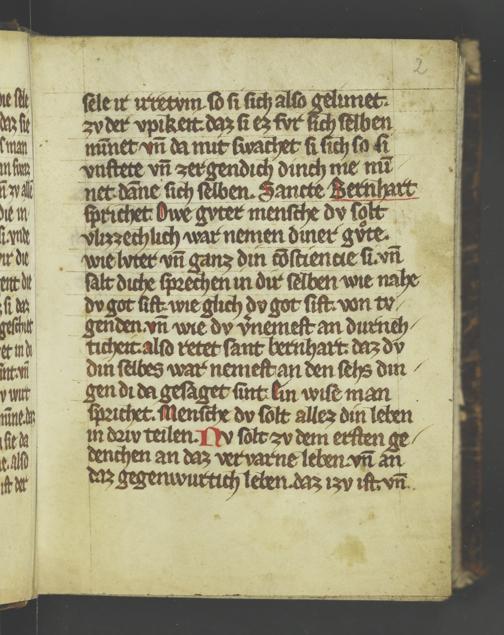 2
sele ir irretvm. so si sich also gelimet.
zv der vpikeit. daz si ez fvr sich selben
minnet vn̄ da mit swachet si sich so si
vnstete vn̄ zergendich dinch me mī
net. dāne sich selben. Sancte Bernhart
sprichet. Owe gvter mensche dv solt
vlizzechlich war nemen diner gv̊te.
wie lvter vn̄ ganz din cōsciencie si. vn̄
salt diche sprechen in dir selben wie nahe
dv got sist. wie glich dv got sist. von tv
genden. vn̄ wie dv v̄nemest an dvrneh
ticheit. also retet sant bernhart. daz dv
din selbes war nemest an den sehs din
gen di da gesaget sint. Ein wise man
sprichet. Mensche dv solt allez din leben
in driv teilen. Nv solt zv dem ersten ge
denchen an daz vervarne leben. vn̄ an
daz gegenwurtich leben. daz izv ist. vn̄